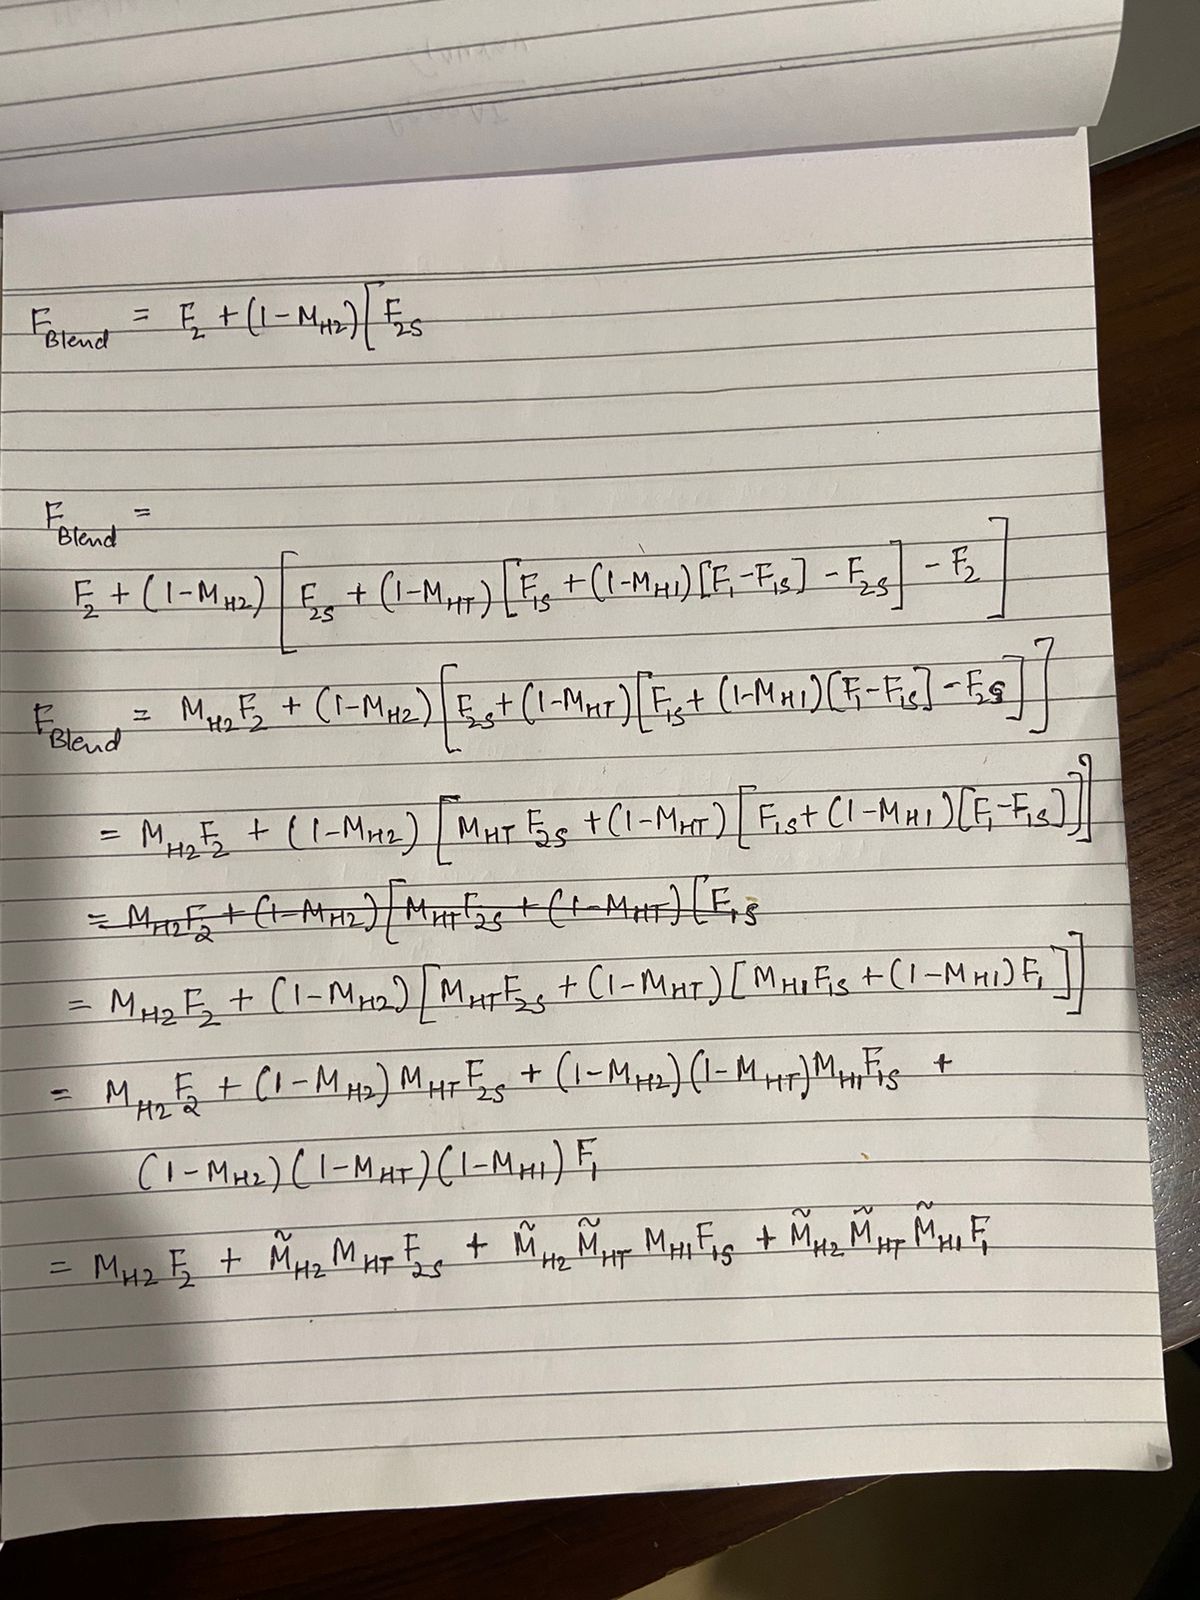 F_Blend = F_2 + (1-M_H2)[F_2S
F_Blend =
F_2 + (1-M_H2)[F_2S + (1-M_HT)[F_1S + (1-M_H1)[F_1-F_1S] - F_2S] - F_2]
F_Blend = M_H2 F_2 + (1-M_H2)[F_2S + (1-M_HT)[F_1S + (1-M_H1)[F_1-F_1S] - F_2S]]
= M_H2 F_2 + (1-M_H2)[M_HT F_2S + (1-M_HT)[F_1S + (1-M_H1)[F_1-F_1S]]]
= M_H2 F_2 + (1-M_H2)[M_HT F_2S + (1-M_HT)[F_1S
= M_H2 F_2 + (1-M_H2)[M_HT F_2S + (1-M_HT)[M_H1 F_1S + (1-M_H1)F_1]]
= M_H2 F_2 + (1-M_H2) M_HT F_2S + (1-M_H2)(1-M_HT)M_H1 F_1S +
(1-M_H2)(1-M_HT)(1-M_H1) F_1
= M_H2 F_2 + M̃_H2 M_HT F_2S + M̃_H2 M̃_HT M_H1 F_1S + M̃_H2 M̃_HT M̃_H1 F_1